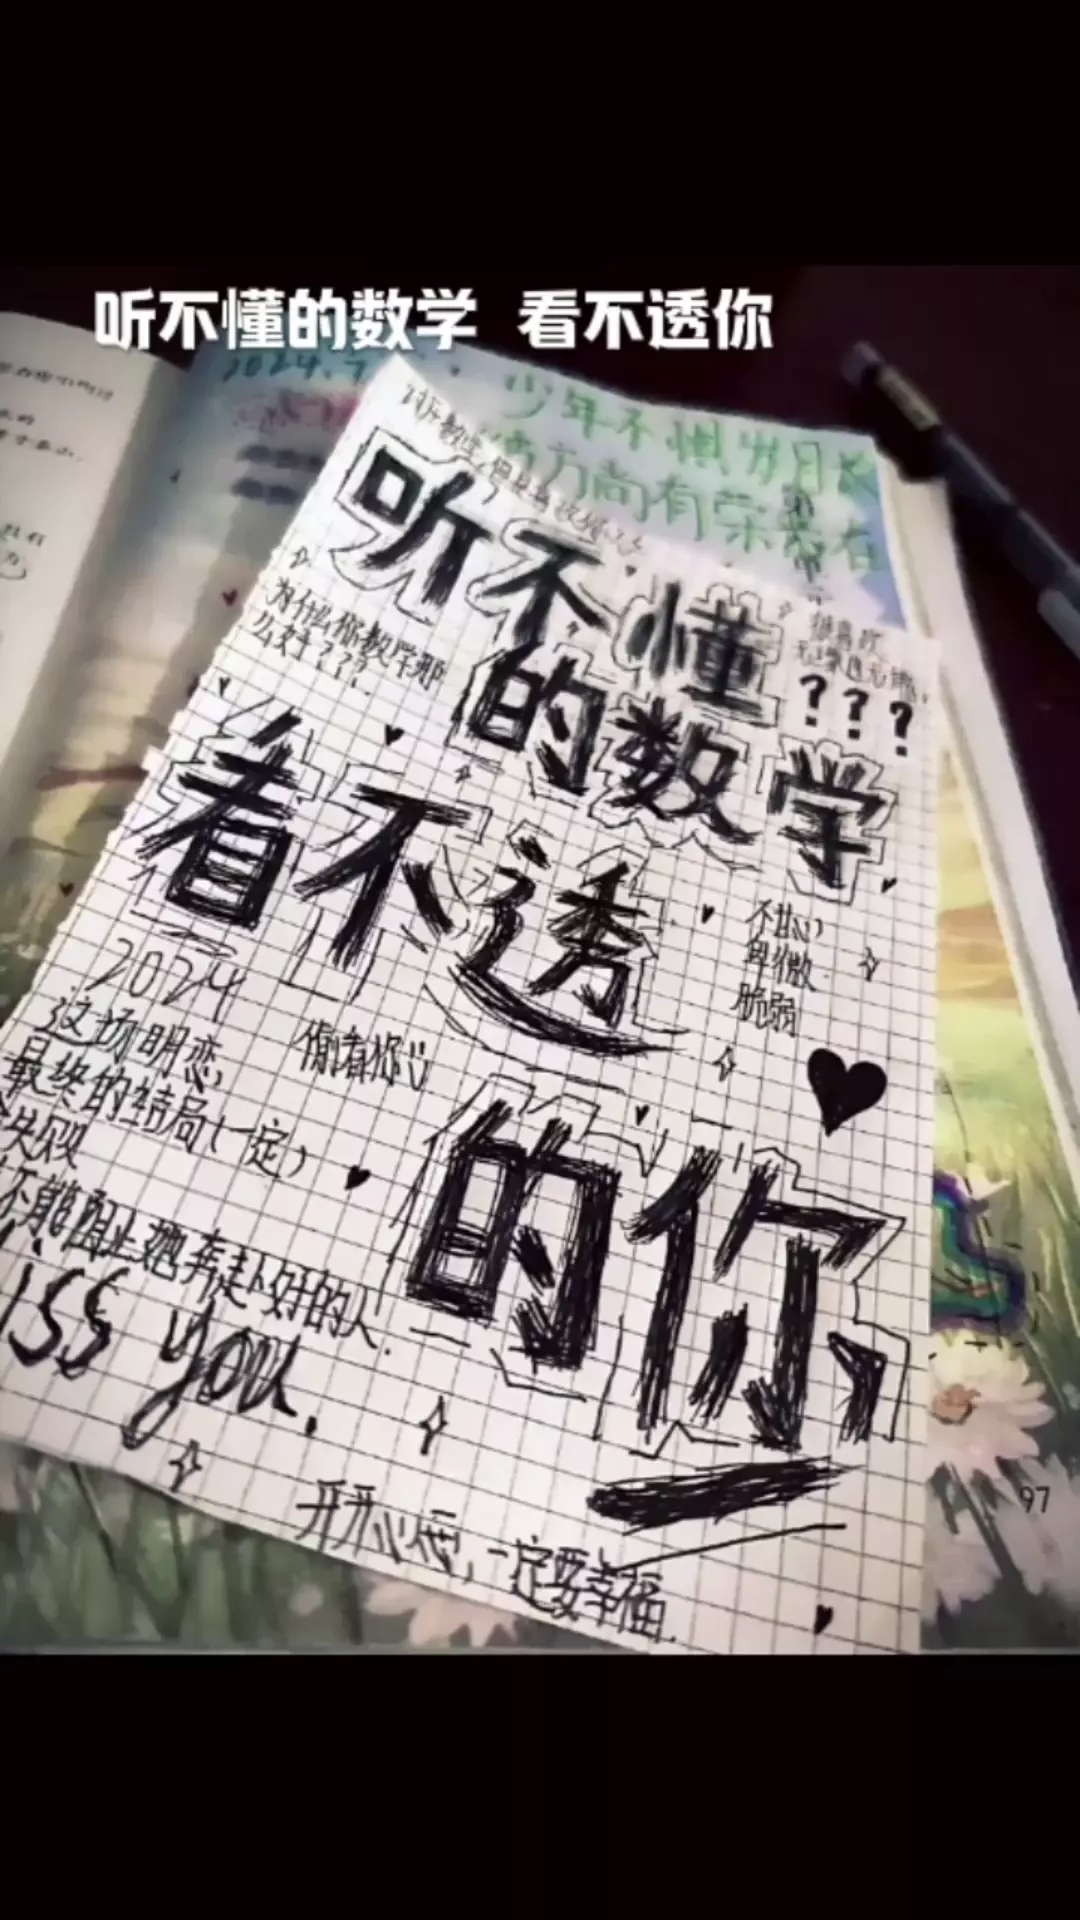 听不懂的数学 看不透你
2024.7
少年不惧岁月长
彼方尚有荣光在
听不懂
的数学
???
为什么你数学那
么好???
看不透
的你
不甘心
卑微
脆弱
2024
偷着你
这场明恋
最终的结局(一定)
失败
不能阻止她奔赴好的人.
iss you.
开开心心, 一定要幸福.
97